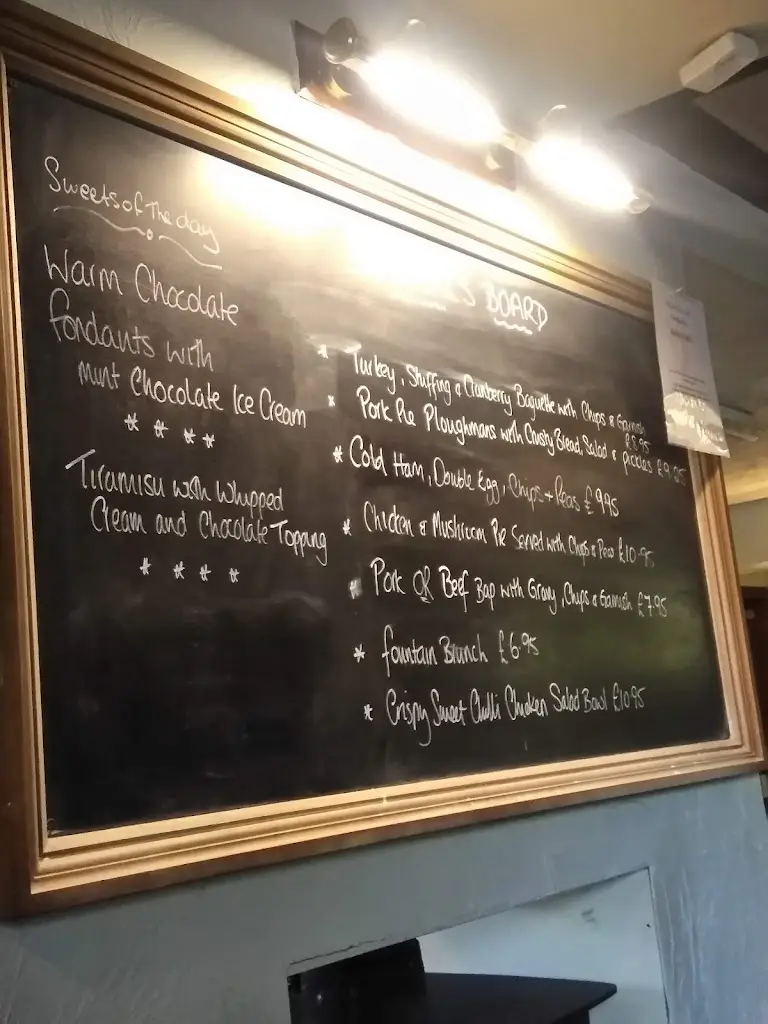 Sweets of The day
Warm Chocolate
fondants with
mint Chocolate Ice Cream
* * * *
Tiramisu with Whipped
Cream and Chocolate Topping
* * * *
BOARD
* Turkey, Stuffing & Cranberry Baguette with Chips & Garnish
£8.95
* Pork Pie Ploughmans with Crusty Bread, Salad & pickles
* Cold Ham, Double Egg, Chips + Peas £9.95
* Chicken & Mushroom Pie Served with Chips & Peas £10.95
* Pork OR Beef Bap with Gravy, Chips & Garnish £7.95
* fountain Brunch £6.95
* Crispy Sweet Chilli Chicken Salad Bowl £10.95